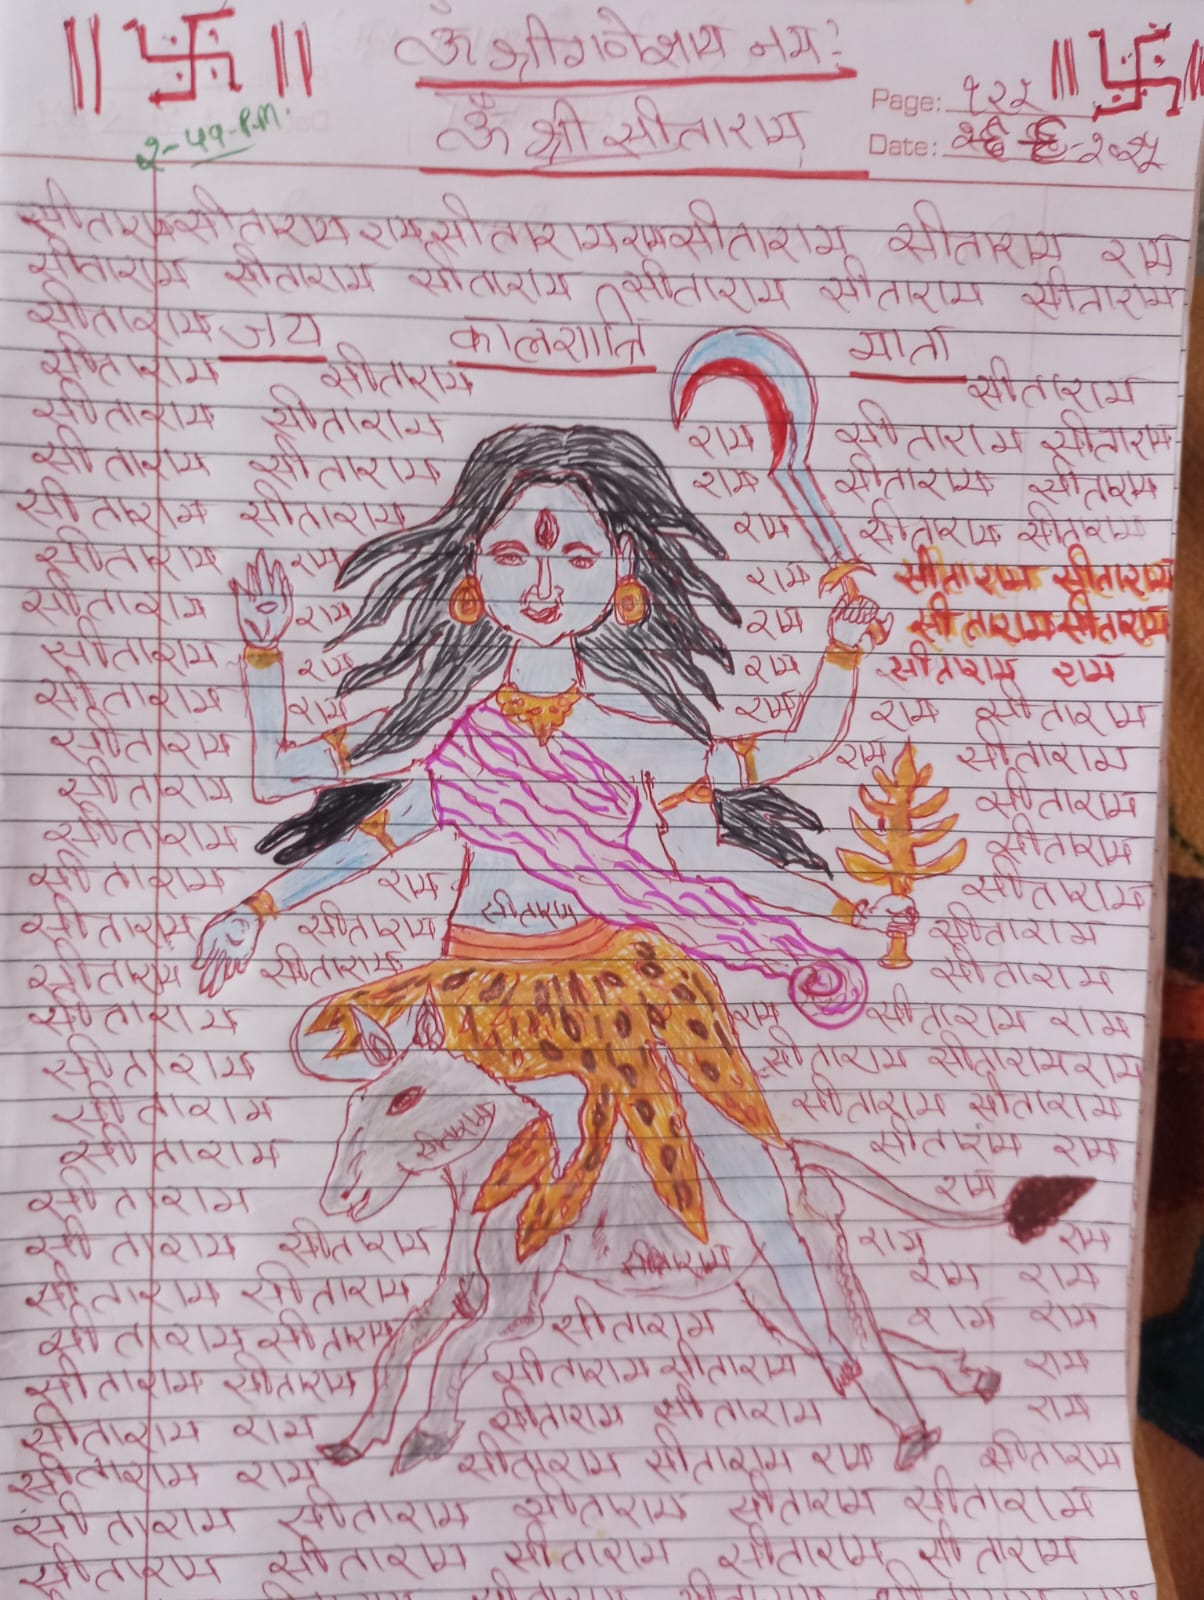 ॐ श्री गणेशाय नमः
ॐ श्री सीताराम
Page: १२२
Date:
२-५१-P.M.
सीताराम सीताराम राम सीताराम राम सीताराम सीताराम राम
सीताराम सीताराम सीताराम सीताराम सीताराम सीताराम
सीताराम जय कालरात्रि माता
सीताराम सीताराम सीताराम
सीताराम सीताराम राम सीताराम सीताराम
सीताराम सीताराम राम सीताराम सीताराम
सीताराम सीताराम राम सीताराम सीताराम
सीताराम राम राम सीताराम सीताराम
सीताराम राम राम सीताराम सीताराम
सीताराम राम राम सीताराम राम
सीताराम राम राम राम सीताराम
सीताराम राम सीताराम
सीताराम सीताराम
सीताराम सीताराम
सीताराम राम सीताराम सीताराम
सीताराम सीताराम सीताराम
सीताराम सीताराम सीताराम
सीताराम राम सीताराम राम
सीताराम सीताराम सीताराम राम
सीताराम सीताराम सीताराम सीताराम
सीताराम सीताराम राम
सीताराम राम
सीताराम सीताराम सीताराम राम राम
सीताराम सीताराम राम राम
सीताराम सीताराम सीताराम राम राम
सीताराम सीताराम सीताराम सीताराम राम
सीताराम राम सीताराम सीताराम राम
सीताराम राम सीताराम सीताराम राम सीताराम
सीताराम सीताराम सीताराम सीताराम सीताराम
सीताराम सीताराम सीताराम सीताराम सीताराम